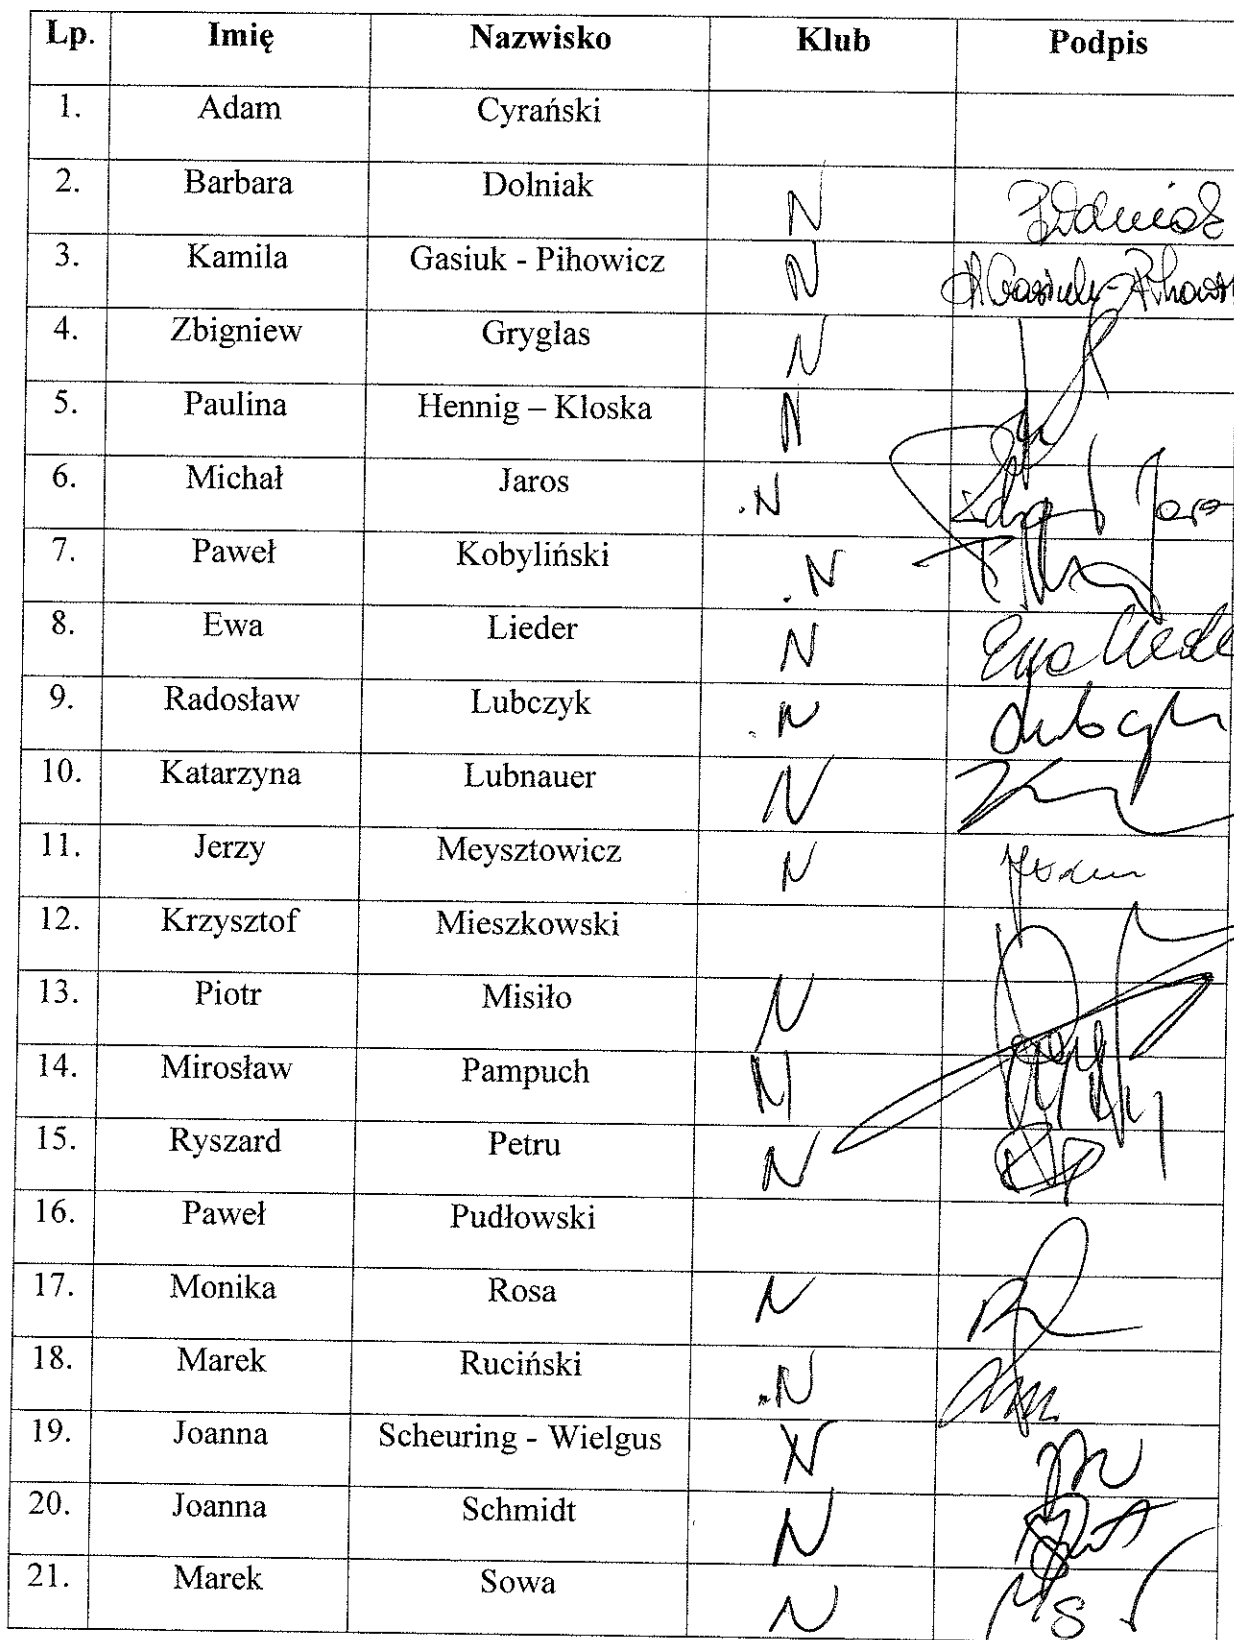 Lp. Imię Nazwisko Klub Podpis
1. Adam Cyrański
2. Barbara Dolniak N
3. Kamila Gasiuk - Pihowicz N
4. Zbigniew Gryglas N
5. Paulina Hennig – Kloska N
6. Michał Jaros .N
7. Paweł Kobyliński .N
8. Ewa Lieder N Ewa
9. Radosław Lubczyk .N
10. Katarzyna Lubnauer N
11. Jerzy Meysztowicz N
12. Krzysztof Mieszkowski
13. Piotr Misiło N
14. Mirosław Pampuch N
15. Ryszard Petru N
16. Paweł Pudłowski
17. Monika Rosa N
18. Marek Ruciński .N
19. Joanna Scheuring - Wielgus N
20. Joanna Schmidt N
21. Marek Sowa N